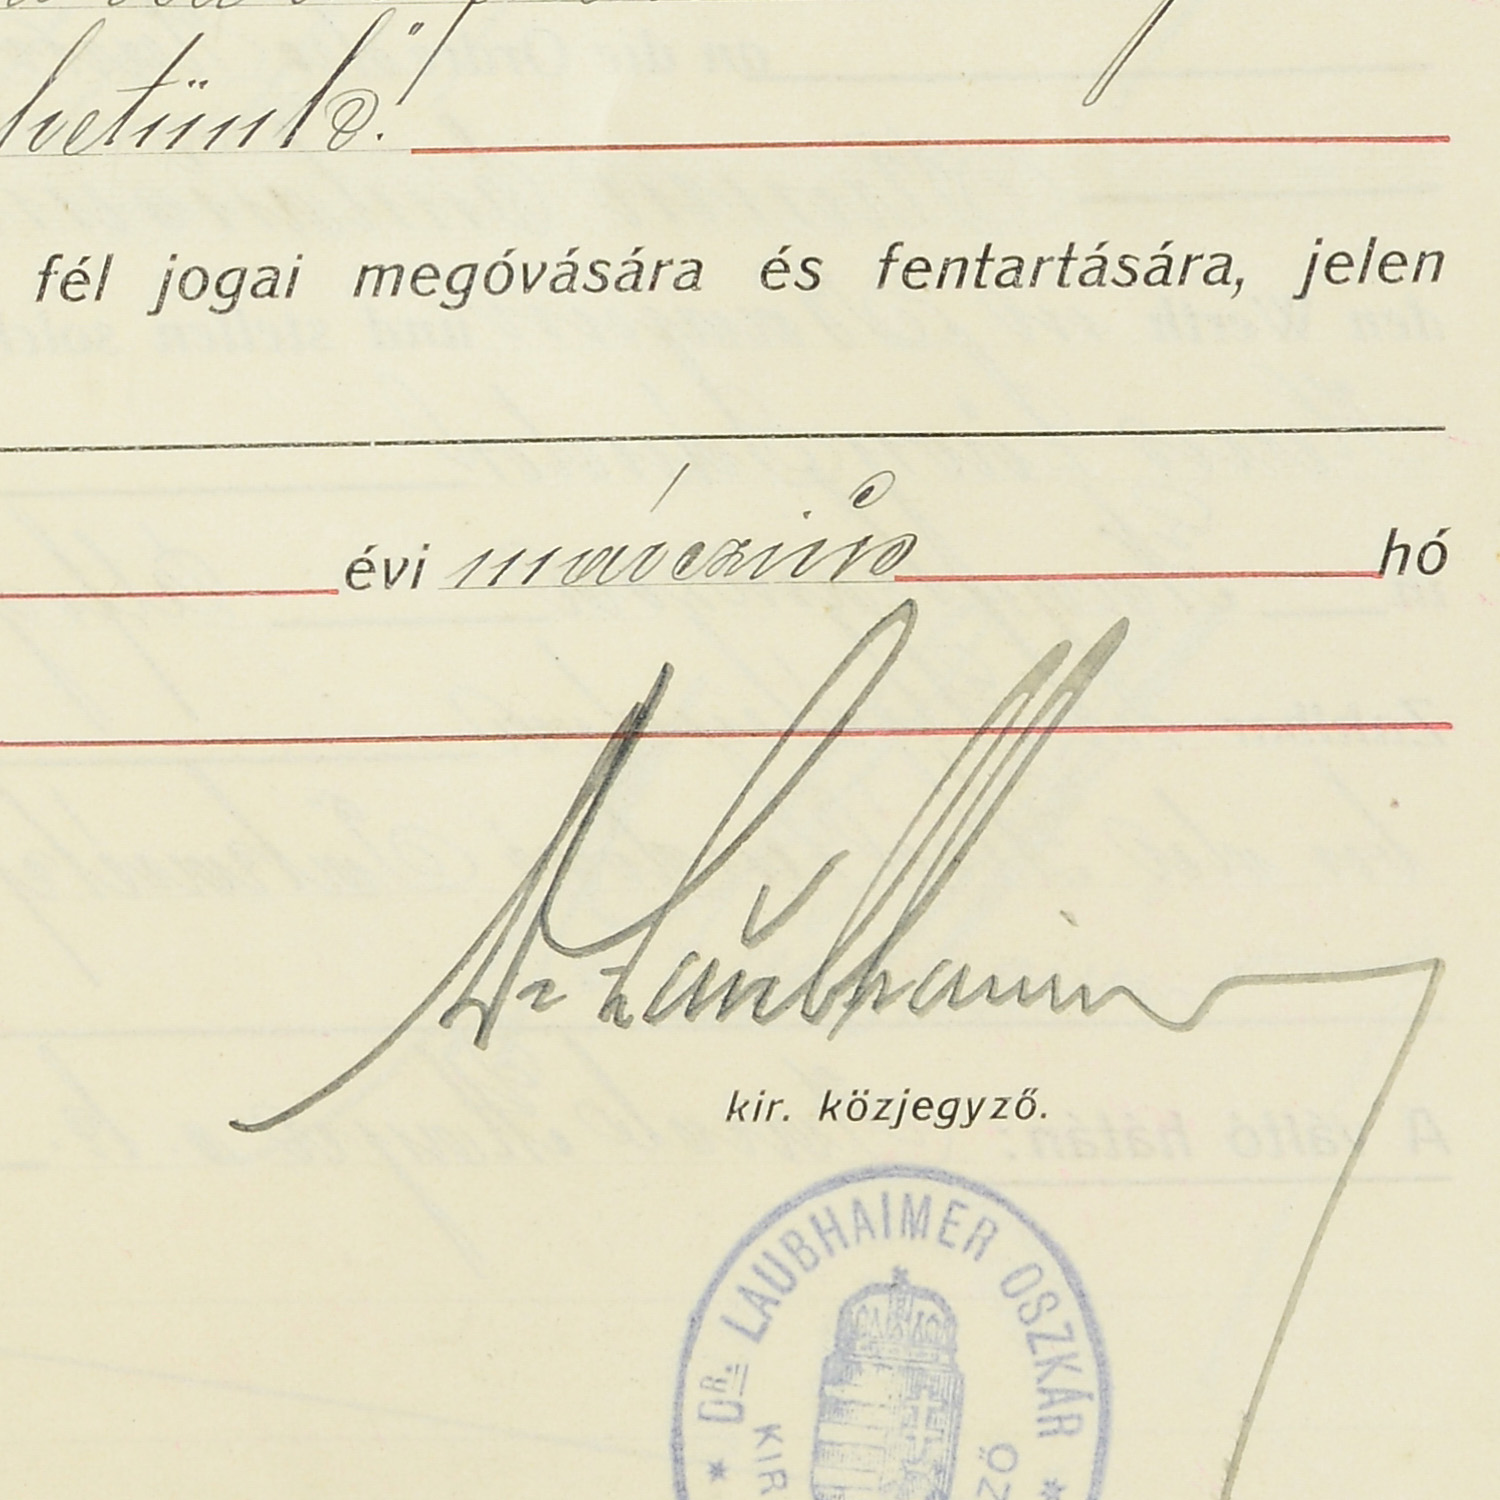 hetünk.
fél jogai megóvására és fentartására, jelen
évi márczius hó
Dr Laubhaimer
kir. közjegyző.
DR. LAUBHAIMER OSZKÁR
KIR